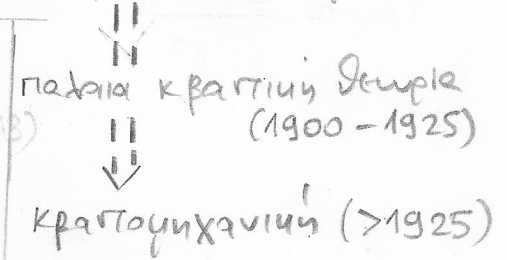 παλαιά κβαντική θεωρία
(1900 - 1925)
κβαντομηχανική (>1925)